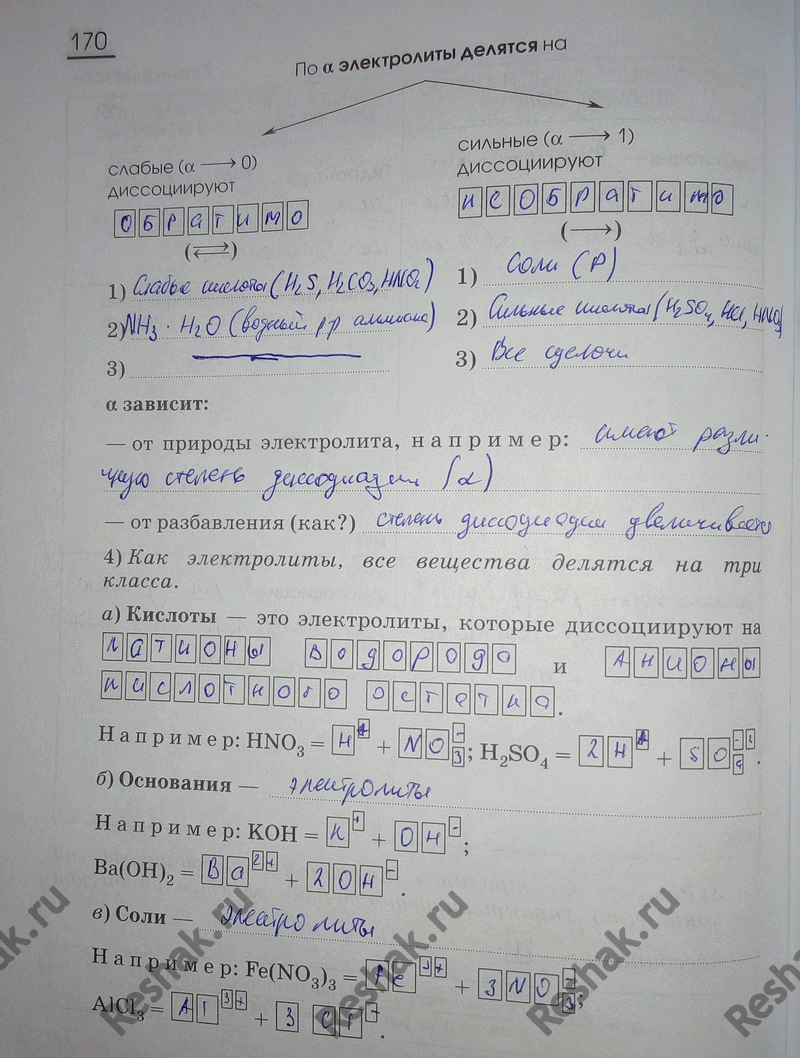 170
По α электролиты делятся на
слабые (α ⟶ 0)
диссоциируют
ОБРАТИМО
(⇄)
1) Слабые кислоты (H₂S, H₂CO₃, HNO₂)
2) NH₃ · H₂O (водный р-р аммиака)
3)
сильные (α ⟶ 1)
диссоциируют
НЕОБРАТИМО
(⟶)
1) Соли (Р)
2) Сильные кислоты (H₂SO₄, HCl, HNO₃)
3) Все щелочи
α зависит:
— от природы электролита, например: имеют разли-
чную степень диссоциации (α)
— от разбавления (как?) степень диссоциации увеличивается
4) Как электролиты, все вещества делятся на три
класса.
а) Кислоты — это электролиты, которые диссоциируют на
КАТИОНЫ ВОДОРОДА и АНИОНЫ
КИСЛОТНОГО ОСТАТКА.
Например: HNO₃ = H⁺ + NO₃⁻; H₂SO₄ = 2H⁺ + SO₄²⁻.
б) Основания — электролиты
Например: KOH = K⁺ + OH⁻;
Ba(OH)₂ = Ba²⁺ + 2OH⁻.
в) Соли — электролиты
Например: Fe(NO₃)₃ = Fe³⁺ + 3NO₃⁻;
AlCl₃ = Al³⁺ + 3Cl⁻.
Reshak.ru
Reshak.ru
Reshak.ru
Reshak.ru
Reshak.ru